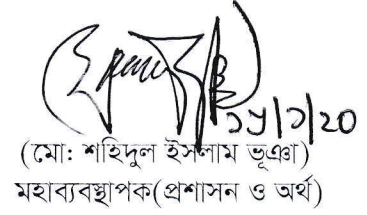 ১৯/১/২০
(মো: শহিদুল ইসলাম ভূঞা)
মহাব্যবস্থাপক(প্রশাসন ও অর্থ)